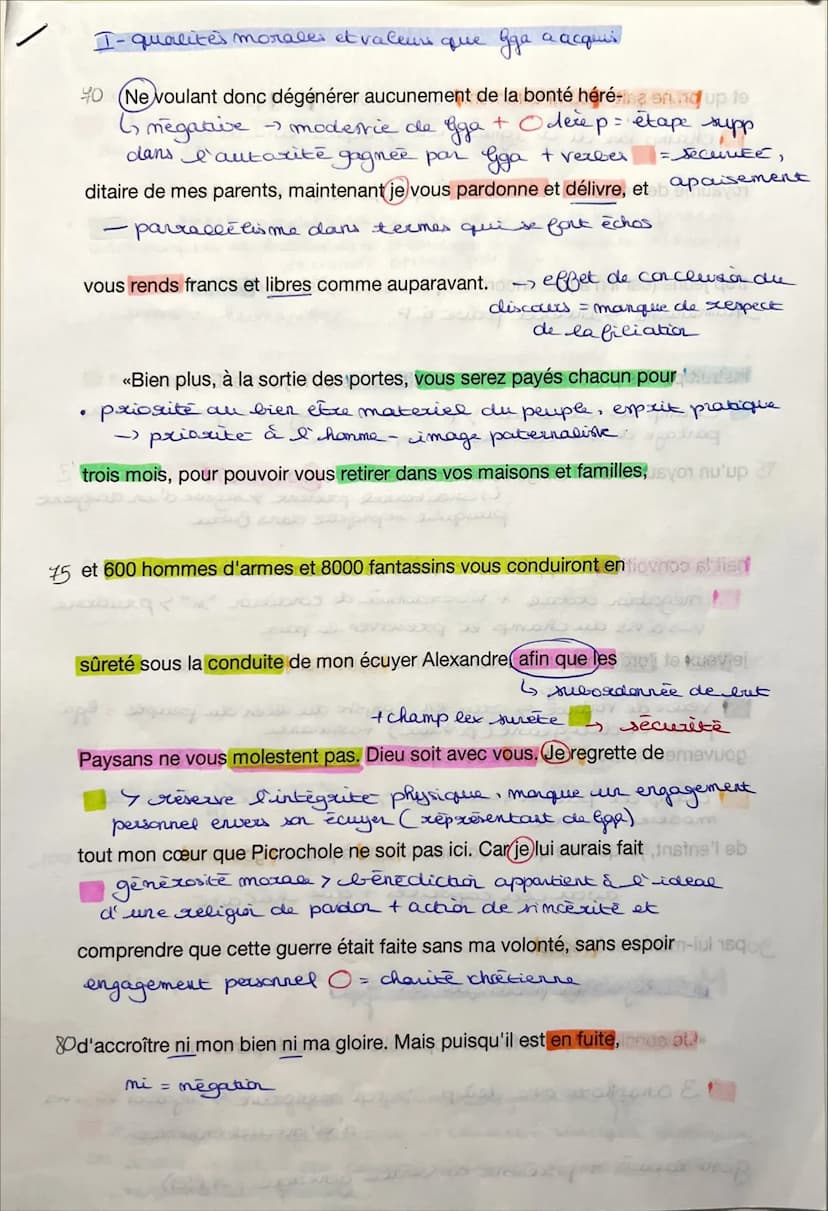 I - qualités morales et valeurs que Gga a acquis
70 Ne voulant donc dégénérer aucunement de la bonté héré-
↳ négative → modestie de Gga + O 1ère p = étape supp
dans l'autorité gagnée par Gga + verbes = sécurité,
apaisement
ditaire de mes parents, maintenant je vous pardonne et délivre, et
- parrallélisme dans termes qui se font échos
vous rends francs et libres comme auparavant. → effet de conclusion du
discours = manque de respect
de la filiation
«Bien plus, à la sortie des portes, vous serez payés chacun pour
• priorité au bien être materiel du peuple, esprit pratique
→ priorité à l'homme - image paternaliste
trois mois, pour pouvoir vous retirer dans vos maisons et familles,
75 et 600 hommes d'armes et 8000 fantassins vous conduiront en
sûreté sous la conduite de mon écuyer Alexandre, afin que les
↳ subordonnée de but
+ champ lex sureté → sécurité
Paysans ne vous molestent pas. Dieu soit avec vous. Je regrette de
↳ réserve l'intégrité physique, marque un engagement
personnel envers son écuyer (représentant de Gga)
tout mon cœur que Picrochole ne soit pas ici. Car je lui aurais fait
générosité morale > bénédiction appartient à l'ideal
d'une religion de pardon + action de sincérité et
comprendre que cette guerre était faite sans ma volonté, sans espoir
engagement personnel O = charité chrétienne
80 d'accroître ni mon bien ni ma gloire. Mais puisqu'il est en fuite,
ni = négation